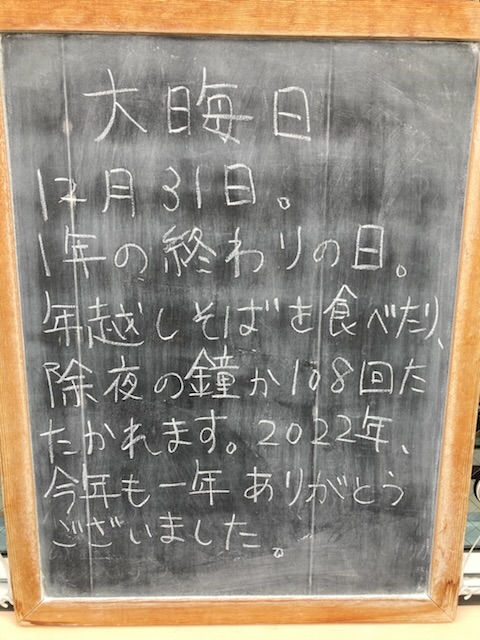 大晦日
12月31日。
1年の終わりの日。
年越しそばを食べたり、
除夜の鐘が108回た
たかれます。2022年、
今年も一年ありがとう
ございました。